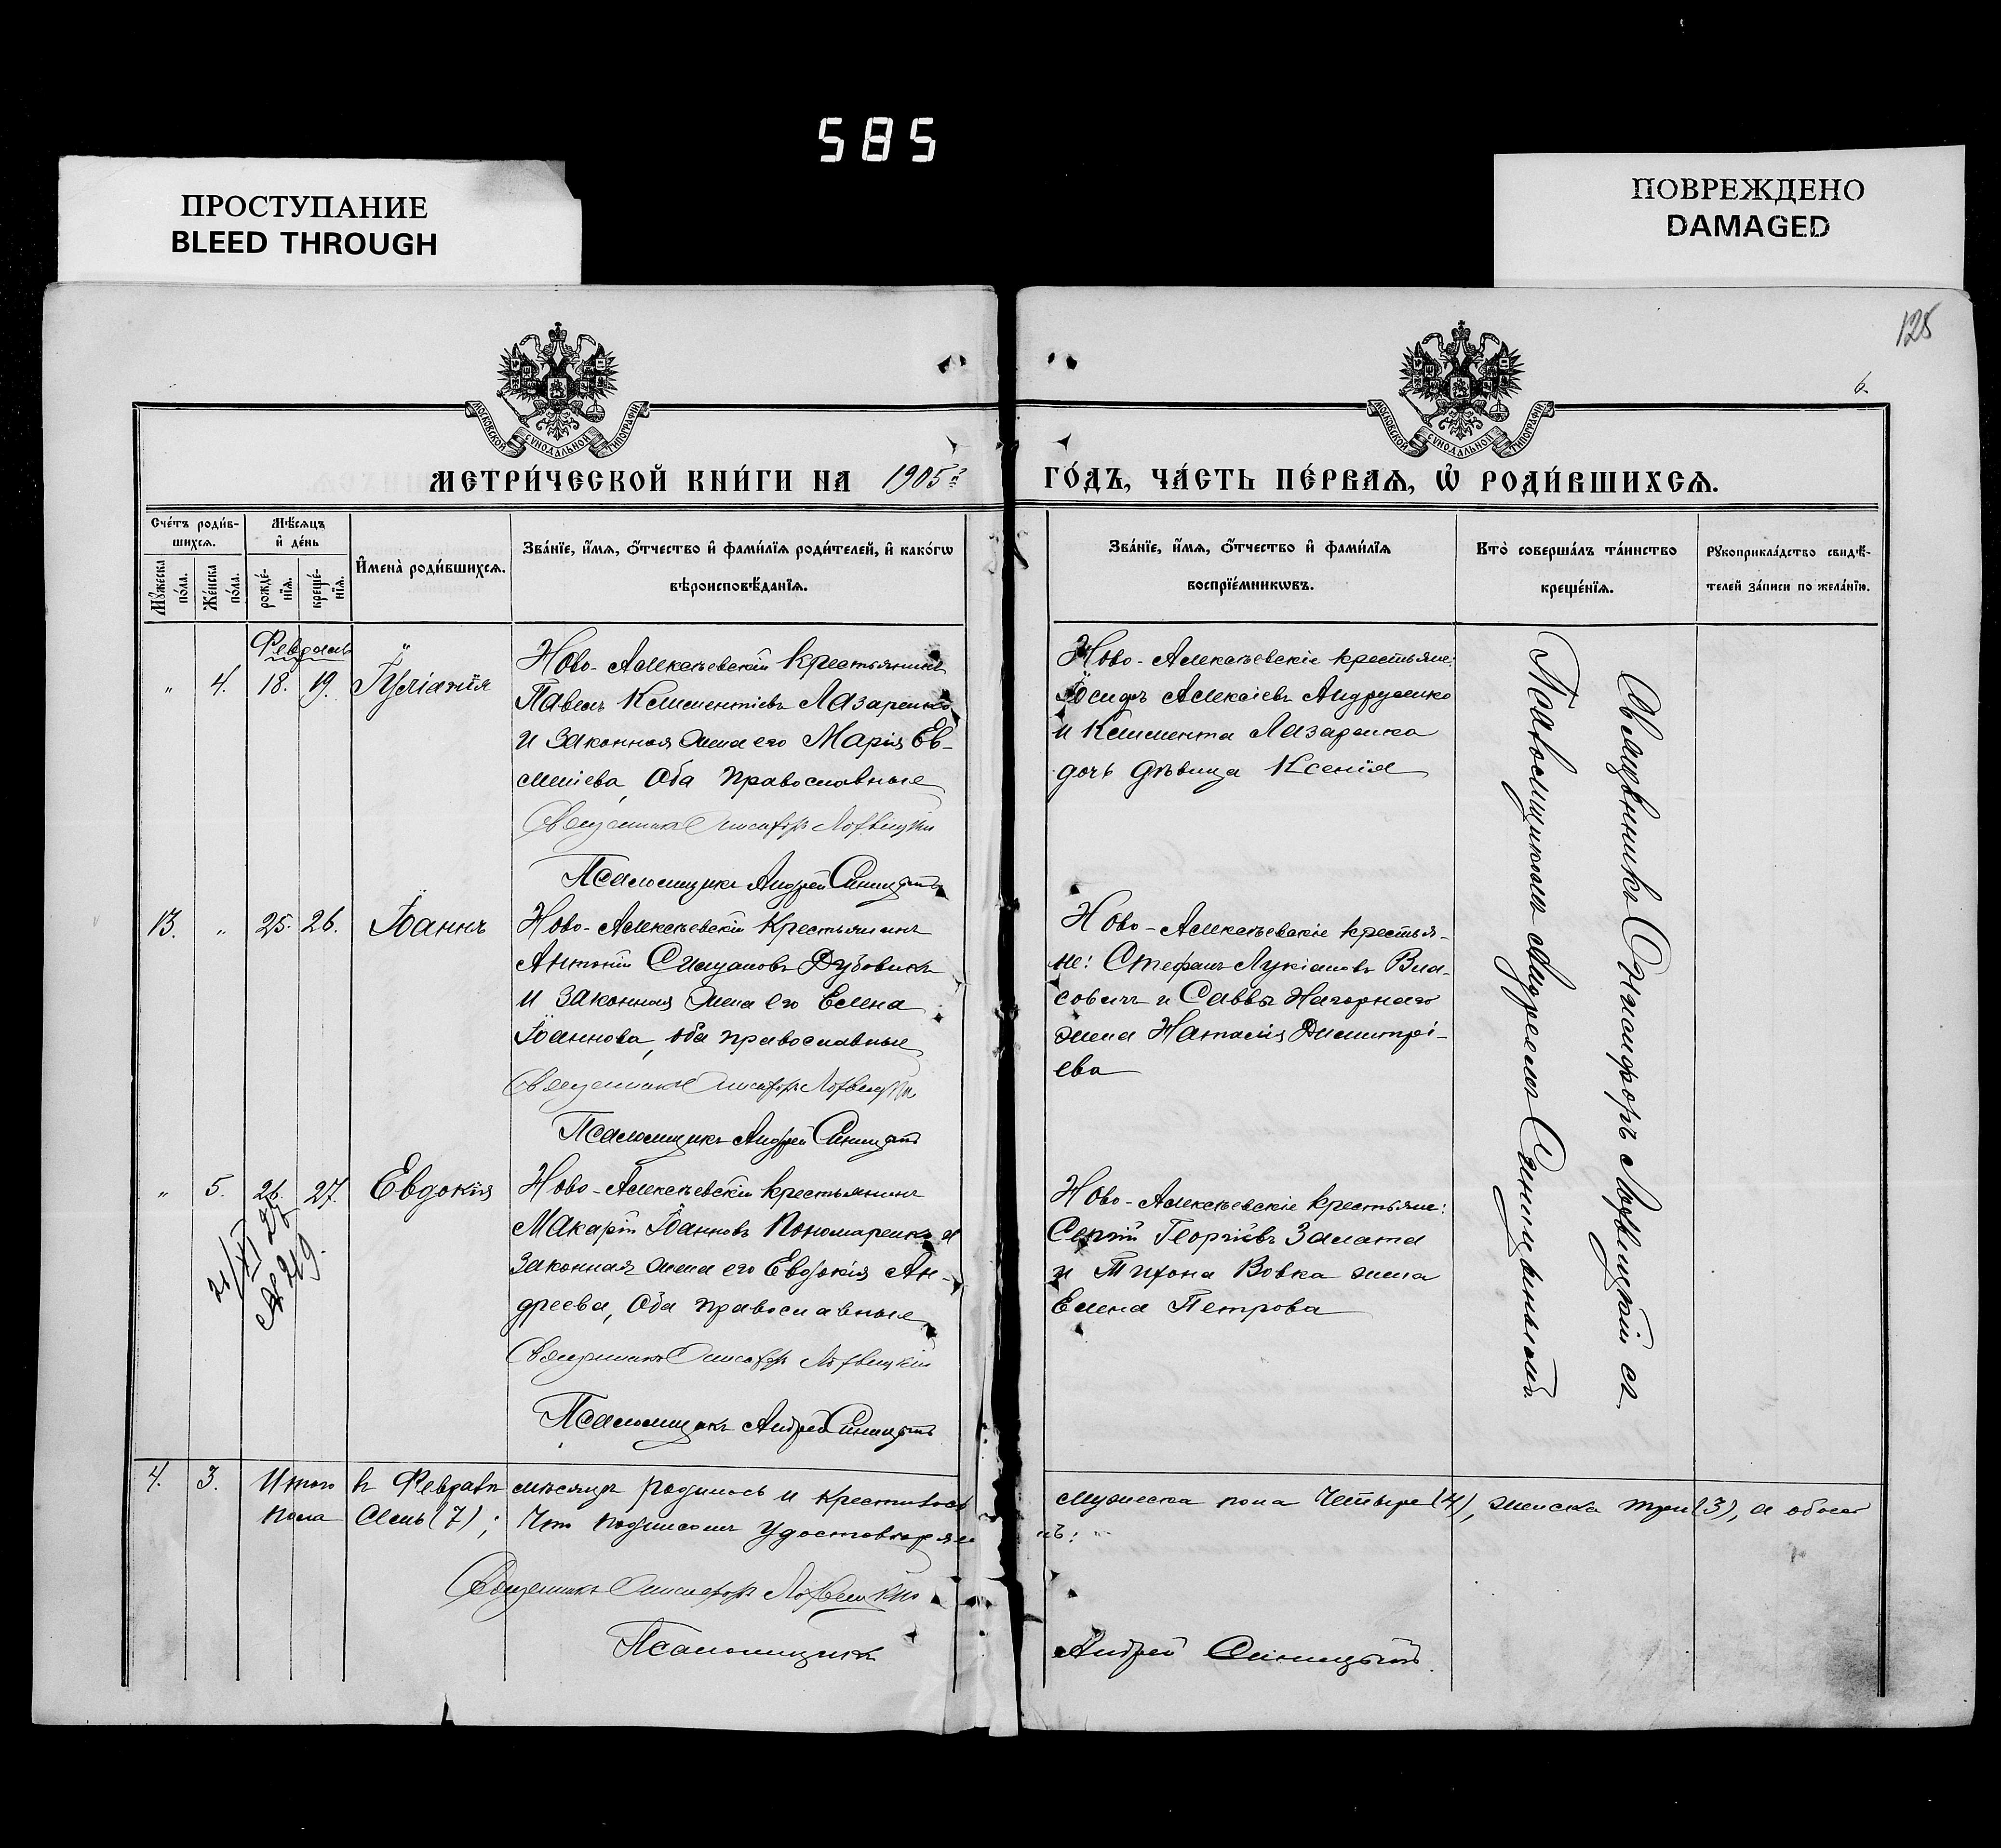 585
ПРОСТУПАНИЕ
BLEED THROUGH
ПОВРЕЖДЕНО
DAMAGED
125
6.
МОСКОВСКОЙ СѴНОДАЛЬНОЙ ТИПОГРАФІИ
МОСКОВСКОЙ СѴНОДАЛЬНОЙ ТИПОГРАФІИ
МЕТРИ́ЧЕСКОЙ КНИ́ГИ НА 1905
ГО́ДЪ, ЧА́СТЬ ПЕ́РВАѦ, Ѡ҆ РОДИ́ВШИХСѦ.
Сче́тъ роди́в-
шихсѧ.
Мꙋ́жеска по́ла.
Же́нска по́ла.
Мѣ́сѧцъ
и҆ де́нь
рожде́-
нїѧ.
креще́-
нїѧ.
И҆мена̀ роди́вшихсѧ.
Зва́нїе, и҆́мѧ, ѻ҆́тчество и҆ фами́лїѧ роди́телей, и҆ како́гѡ
вѣроисповѣ́данїѧ.
Зва́нїе, и҆́мѧ, ѻ҆́тчество и҆ фами́лїѧ
воспрїе́мникѡвъ.
Кто̀ соверша́лъ та́инство
креще́нїѧ.
Рꙋкоприкла́дство свидѣ́-
телей за́писи по жела́нїю.
Февраль
" 4. 18. 19. Іуліанія
Ново-Алексѣевскій крестьянинъ
Павелъ Климентіевъ Лазаренко
и законная жена его Марія Ев-
симіева, оба православные
Священникъ Онисифоръ Лотвицкій
Псаломщикъ Андрей Синицынъ
Ново-Алексѣевскіе крестьяне:
Іосифъ Алексіевъ Андрущенко
и Климента Лазаренка
дочь дѣвица Ксенія
13. " 25. 26. Іоаннъ
Ново-Алексѣевскій крестьянинъ
Антоній Дубовикъ
и законная жена его Елена
Іоаннова, оба православные
Священникъ Онисифоръ Лотвицкій
Псаломщикъ Андрей Синицынъ
Ново-Алексѣевскіе крестья-
не: Стефанъ Лукіановъ Вла-
совичъ и Саввы Нагорнаго
жена Наталія Димитрі-
ева
" 5. 26. 27. Евдокія
21/XI 26
№ 219.
Ново-Алексѣевскій крестьянинъ
Макарій Іоанновъ Пономаренко и
законная жена его Евдокія Ан-
дреева, оба православные
Священникъ Онисифоръ Лотвицкій
Псаломщикъ Андрей Синицынъ
Ново-Алексѣевскіе крестьяне:
Сергій Георгіевъ Залата
и Тихона Вовка жена
Елена Петрова
Священникъ Онисифоръ Лотвицкій съ
Псаломщикомъ Андреемъ Синицынымъ.
4. 3. Итого въ Февралѣ мѣсяцѣ родилось и крестилось мужеска пола четыре (4), женска три (3), а обоего
пола семь (7); что подписомъ удостовѣряемъ:
Священникъ Онисифоръ Лотвицкій
Псаломщикъ Андрей Синицынъ.